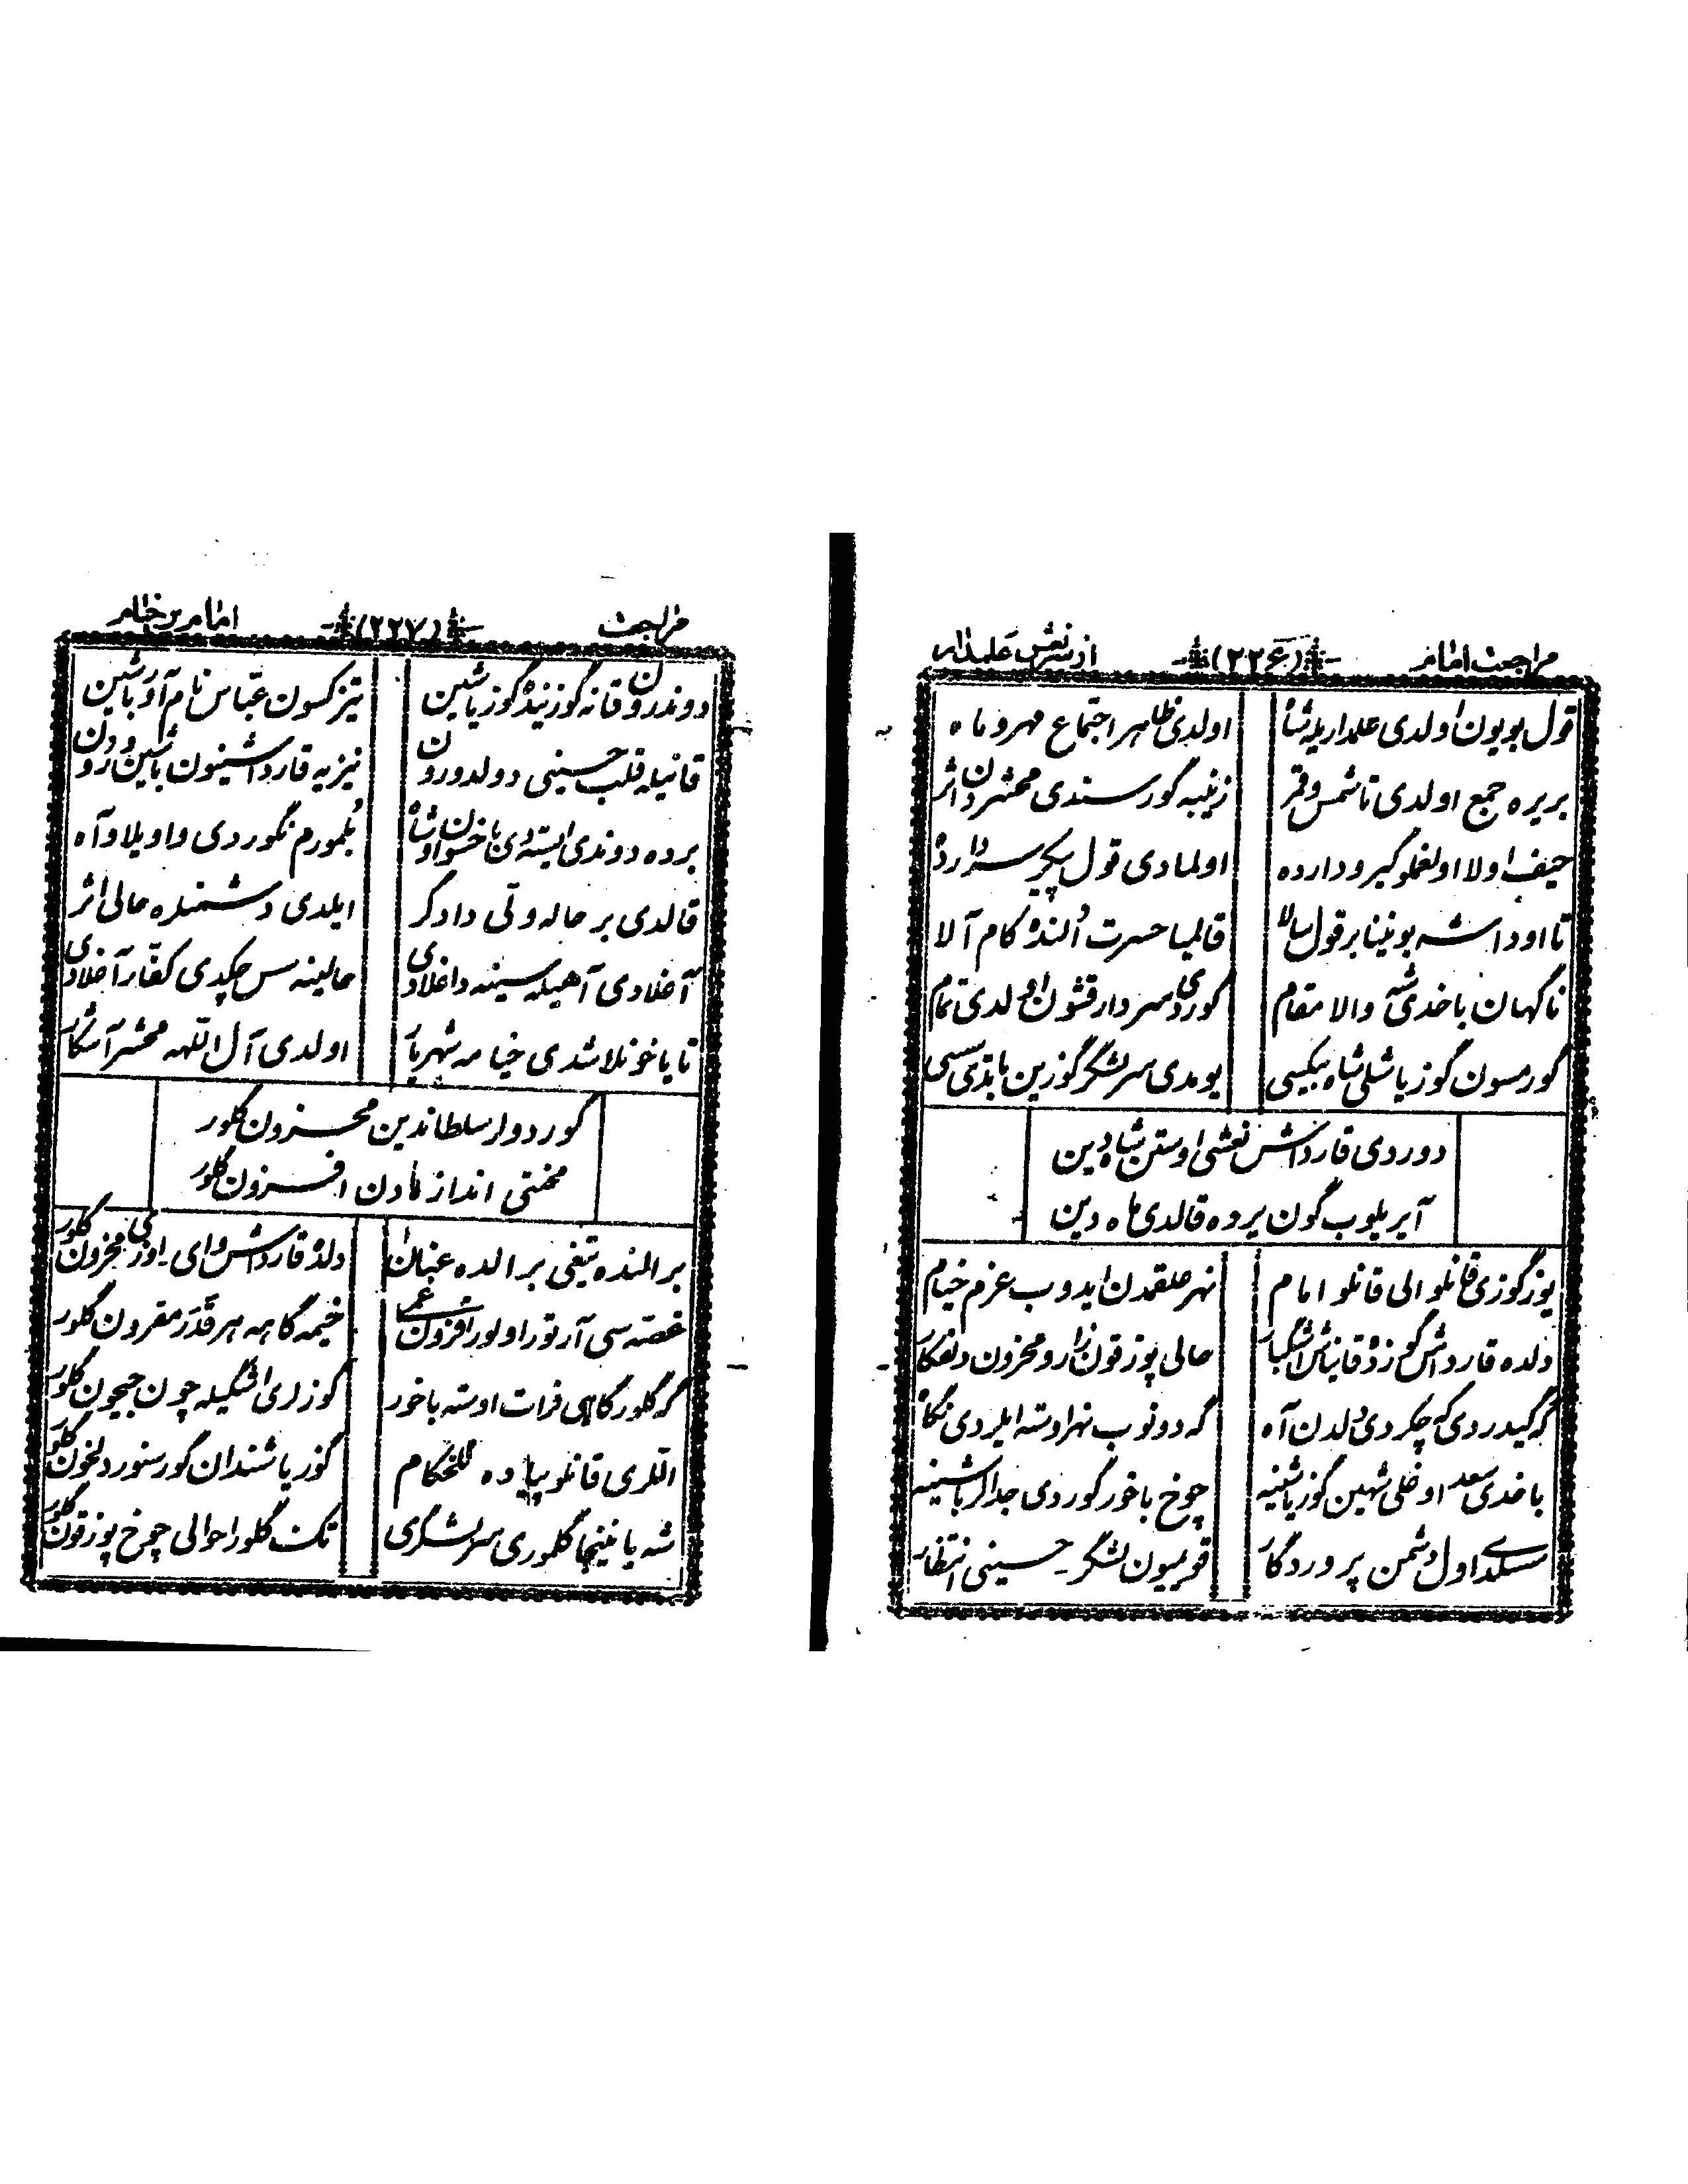 مراجعت امام (۲۲۶) از سر نعش علمدار
قول بویون اولدی علمداریله شاه اولدی ظاهر اجتماع مهر و ماه
بریره جمع اولدی تا شمس و قمر زینبه گورسندی محشردن اثر
حیف اولا اولغملو گیر و دارده اولمادی قول پیکر سردارده
تا اودا شه بوینینا بر قول سالا قالمیا حسرت النده کام آلا
ناگهان باخدی شه والا مقام گوردی سردار قشون اولدی تمام
گورمسون گوز یاشلی شاه بیکسی یومدی سرلشگر گوزین باتدی سسی
دوردی قارداش نعشی اوستن شاه دین
آیریلوب گون یرده قالدی ماه دین
یوز گوزی قانلو الی قانلو امام نهر علقمدن ایدوب عزم خیام
دلده قارداش گوزده قانیاش اشگبار حالی پوزقون زار و محزون دلفکار
گه گیدردی گه چکردی دلدن آه گه دونوب نهر اوسته ایلردی نگاه
باخدی سعد اوغلی شهین گوز یاشینه چوخ باخور گوردی جدا گر باشینه
سسلدی اول دشمن پروردگار قویمیون لشگر حسینی انتظار
مراجعت (۲۲۷) امام بر خیام
دوندرون قانه گوزینده گوز یاشین تیز کسون عباس نام آور باشین
قانیله قلب حسینی دولدورون نیزیه قارداشینون باشین ورون
یرده دوندی ایستدی باخسون اوشاه بلمورم نگوردی واویلا و آه
قالدی بر حاله ولی دادگر ایلدی دشمنلره حالی اثر
آغلادی آهیله سینه داغلادی حالینه سس چکدی کفار آغلادی
تا یاخونلاشدی خیامه شهریار اولدی آل اللهه محشر آشکار
گوردولر سلطاندین محزون گلور
محنتی اندازهادن افزون گلور
بر النده تیغی بر الده عنان دلده قارداش وای اوزی محزون گلور
غصه‌سی آرتور اولور افزون غمی خیمه‌گاهه هر قدر مقرون گلور
گه گلور گاهی فرات اوسته باخور گوزلری اشگیله چون جیحون گلور
اللری قانلو پیاده تلخکام گوز یاشندان گورسنور دلخون گلور
شه یانینجا گلموری سرلشگری تک گلور احوالی چوخ پوزقون گلور